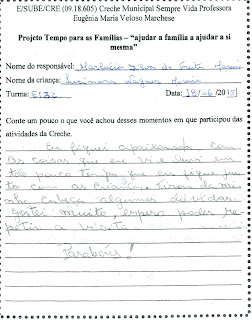 E/SUBE/CRE (09.18.605) Creche Municipal Sempre Vida Professora
Eugênia Maria Veloso Marchese
Projeto Tempo para as Famílias – "ajudar a família a ajudar a si
mesma"
Nome do responsável: Silva de
Nome da criança:
Turma: EI32 Data: 18/06/2015
Conte um pouco o que você achou desses momentos em que participou das
atividades da Creche.
Eu fiquei apaixonada com
as coisas que eu vi e
tão pouco tempo que eu fiquei jun
to com as crianças. Tirou da mi
nha cabeça algumas dúvidas.
gostei muito, espero poder re
petir a visita
Parabéns!